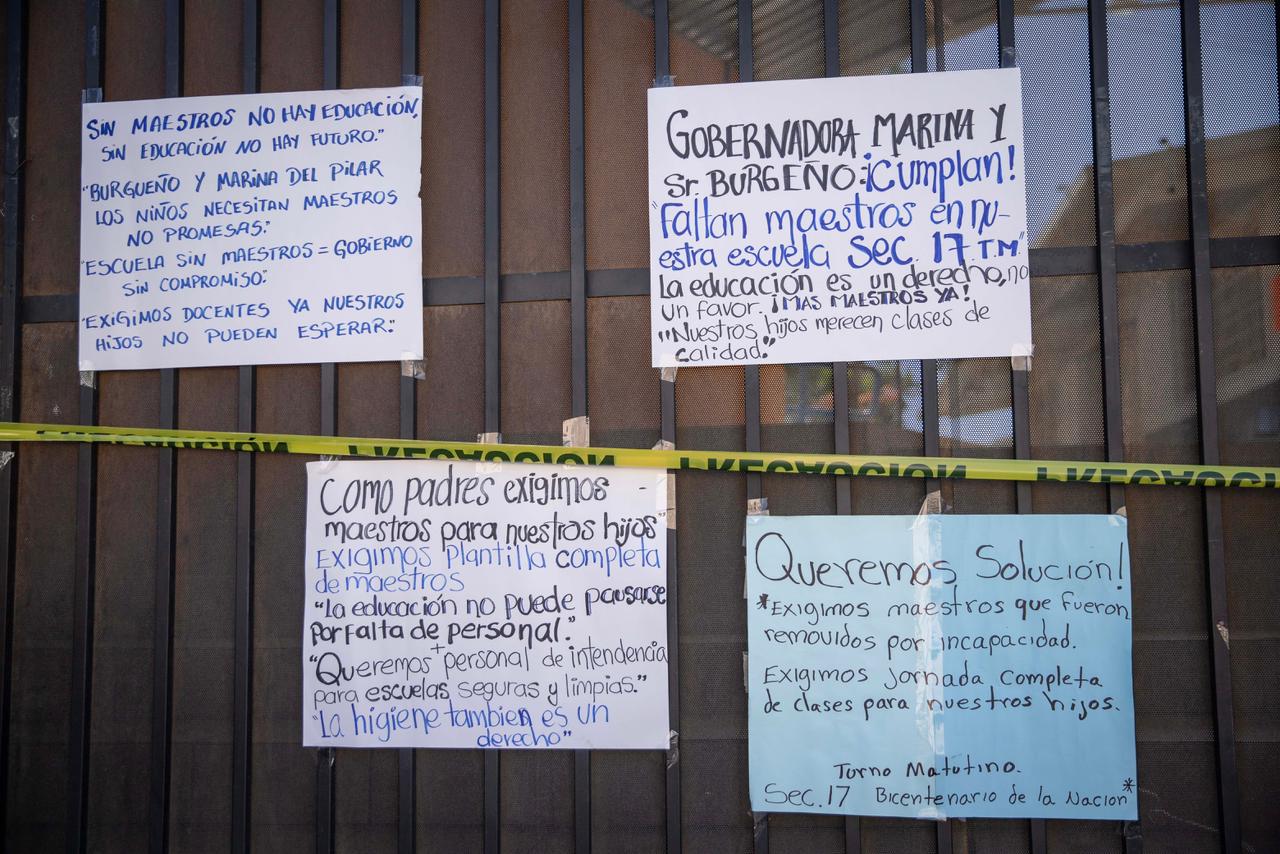 SIN MAESTROS NO HAY EDUCACIÓN,
SIN EDUCACIÓN NO HAY FUTURO."
"BURGUEÑO Y MARINA DEL PILAR
LOS NIÑOS NECESITAN MAESTROS
NO PROMESAS."
"ESCUELA SIN MAESTROS = GOBIERNO
SIN COMPROMISO".
"EXIGIMOS DOCENTES YA NUESTROS
HIJOS NO PUEDEN ESPERAR."
GOBERNADORA MARINA Y
Sr. BURGEÑO: ¡Cumplan!
"Faltan maestros en nu-
estra escuela Sec. 17 T.M."
La educación es un derecho, no
un favor. ¡MAS MAESTROS YA!
"Nuestros hijos merecen clases de
calidad."
PRECAUCIÓN PRECAUCIÓN PRECAUCIÓN PRECAUCIÓN
Como padres exigimos -
maestros para nuestros hijos"
Exigimos Plantilla completa
de maestros
"La educación no puede pausarse
por falta de personal."
"Queremos + personal de intendencia
para escuelas seguras y limpias."
"La higiene tambien es un
derecho"
Queremos Solución!
*Exigimos maestros que fueron
removidos por incapacidad.
Exigimos jornada completa
de clases para nuestros hijos.
Turno Matutino.
Sec. 17 Bicentenario de la Nacion*